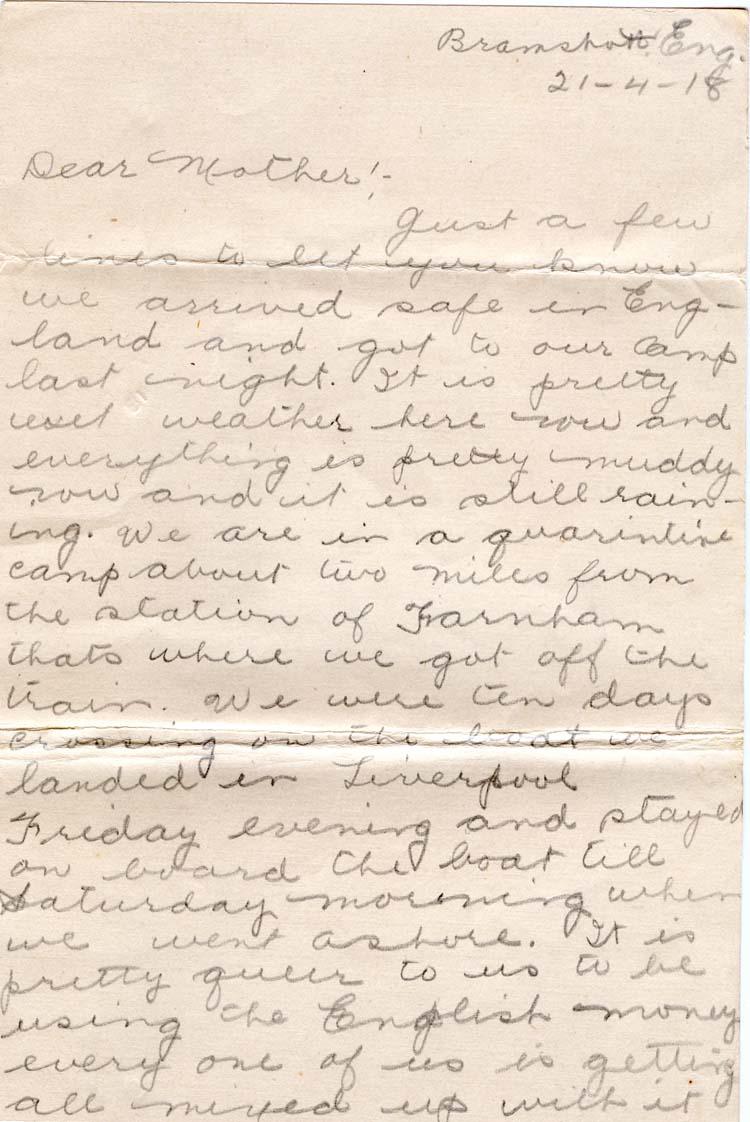 Bramshott. Eng.
21-4-18
Dear Mother!-
Just a few
lines to let you know
we arrived safe in Eng-
land and got to our camp
last night. It is pretty
wet weather here now and
everything is pretty muddy
now and it is still rain-
ing. We are in a quarintine
camp about two miles from
the station of Farnham
thats where we got off the
train. We were ten days
crossing on the boat we
landed in Liverpool
Friday evening and stayed
on board the boat till
Saturday morning when
we went ashore. It is
pretty queer to us to be
using the English money
every one of us is getting
all mixed up with it